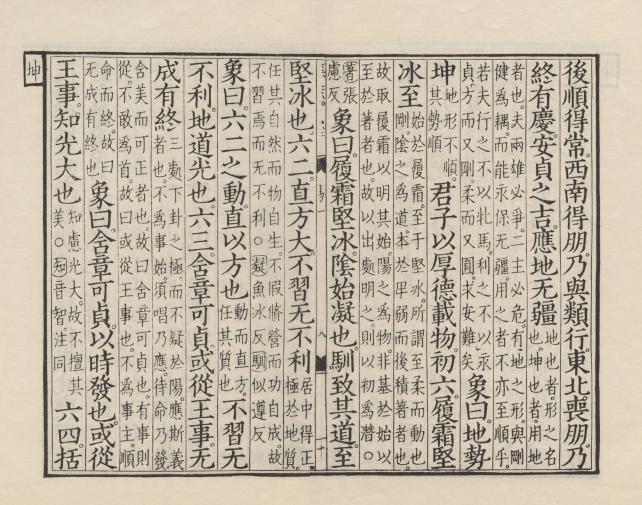 後順得常西南得朋乃與類行東北喪朋乃
終有慶安貞之吉應地无疆地也者形之名也坤也者用地
者也夫兩雄必爭二主必危有地之形與剛
健爲耦而能永保无疆用之者不亦至順乎
若夫行之不以牝馬利之不以永
貞方而又剛柔而又圓求安難矣象曰地勢
坤地形不順其勢順君子以厚德載物初六履霜堅
冰至始於履霜至于堅冰所謂至柔而動也
剛陰之爲道本於卑弱而後積著者也
故取履霜以明其始陽之爲物非基於始以
至於著者也故以出處明之則以初爲潛○
著張慮反象曰履霜堅冰陰始凝也馴致其道至
堅冰也六二直方大不習无不利居中得正極於地質
任其自然而物自生不假脩營而功自成故
不習焉而无不利○凝魚冰反馴似遵反
象曰六二之動直以方也動而直方任其質也不習无
不利地道光也六三含章可貞或從王事无
成有終三處下卦之極而不疑於陽應斯義
者也不爲事始須唱乃應待命乃發
含美而可正者也故曰含章可貞也有事則
從不敢爲首故曰或從王事也不爲事主順
命而終故曰无成有終也象曰含章可貞以時發也或從
王事知光大也知慮光大故不擅其美○知音智注同六四括
坤